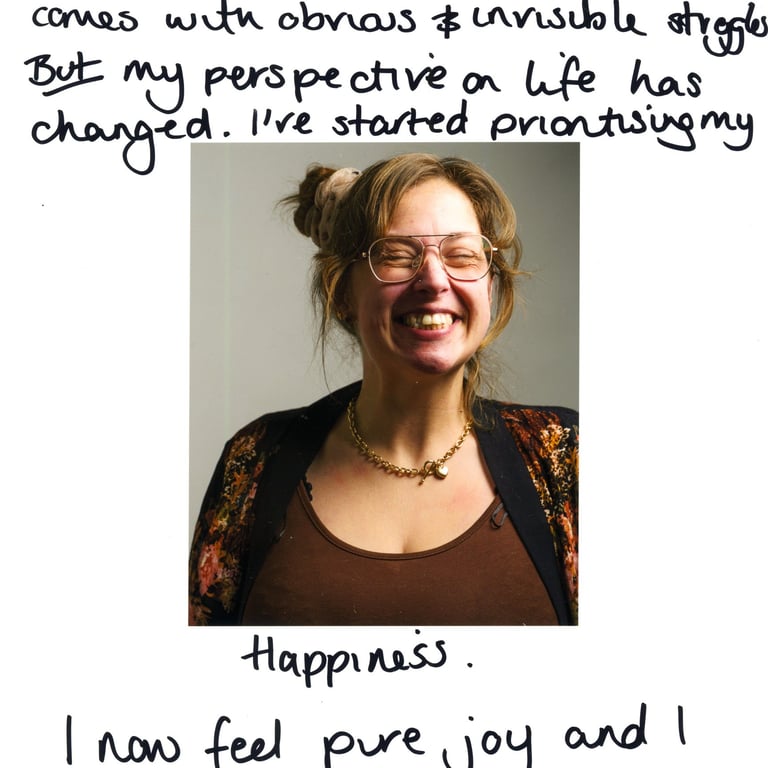 comes with obvious & invisible struggles
But my perspective on life has
changed. I've started prioritising my
Happiness.
I now feel pure joy and I